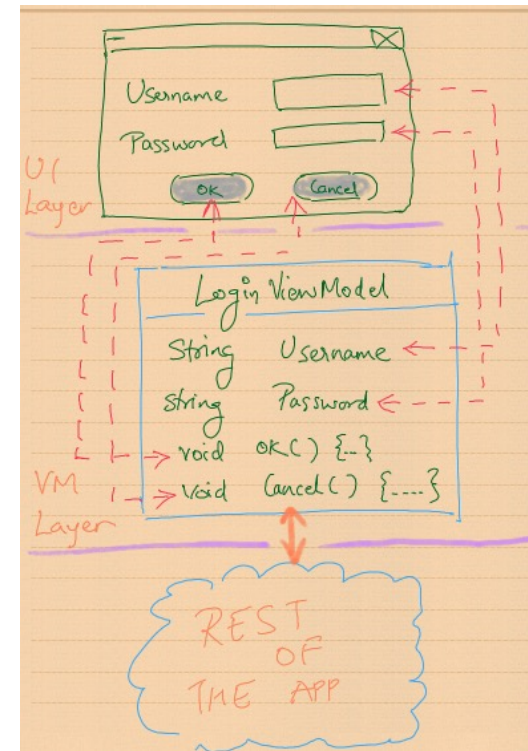 Username
Password
OK Cancel
UI
Layer
Login ViewModel
String Username
string Password
void OK() {...}
Void Cancel() {....}
VM
Layer
REST
OF
THE APP